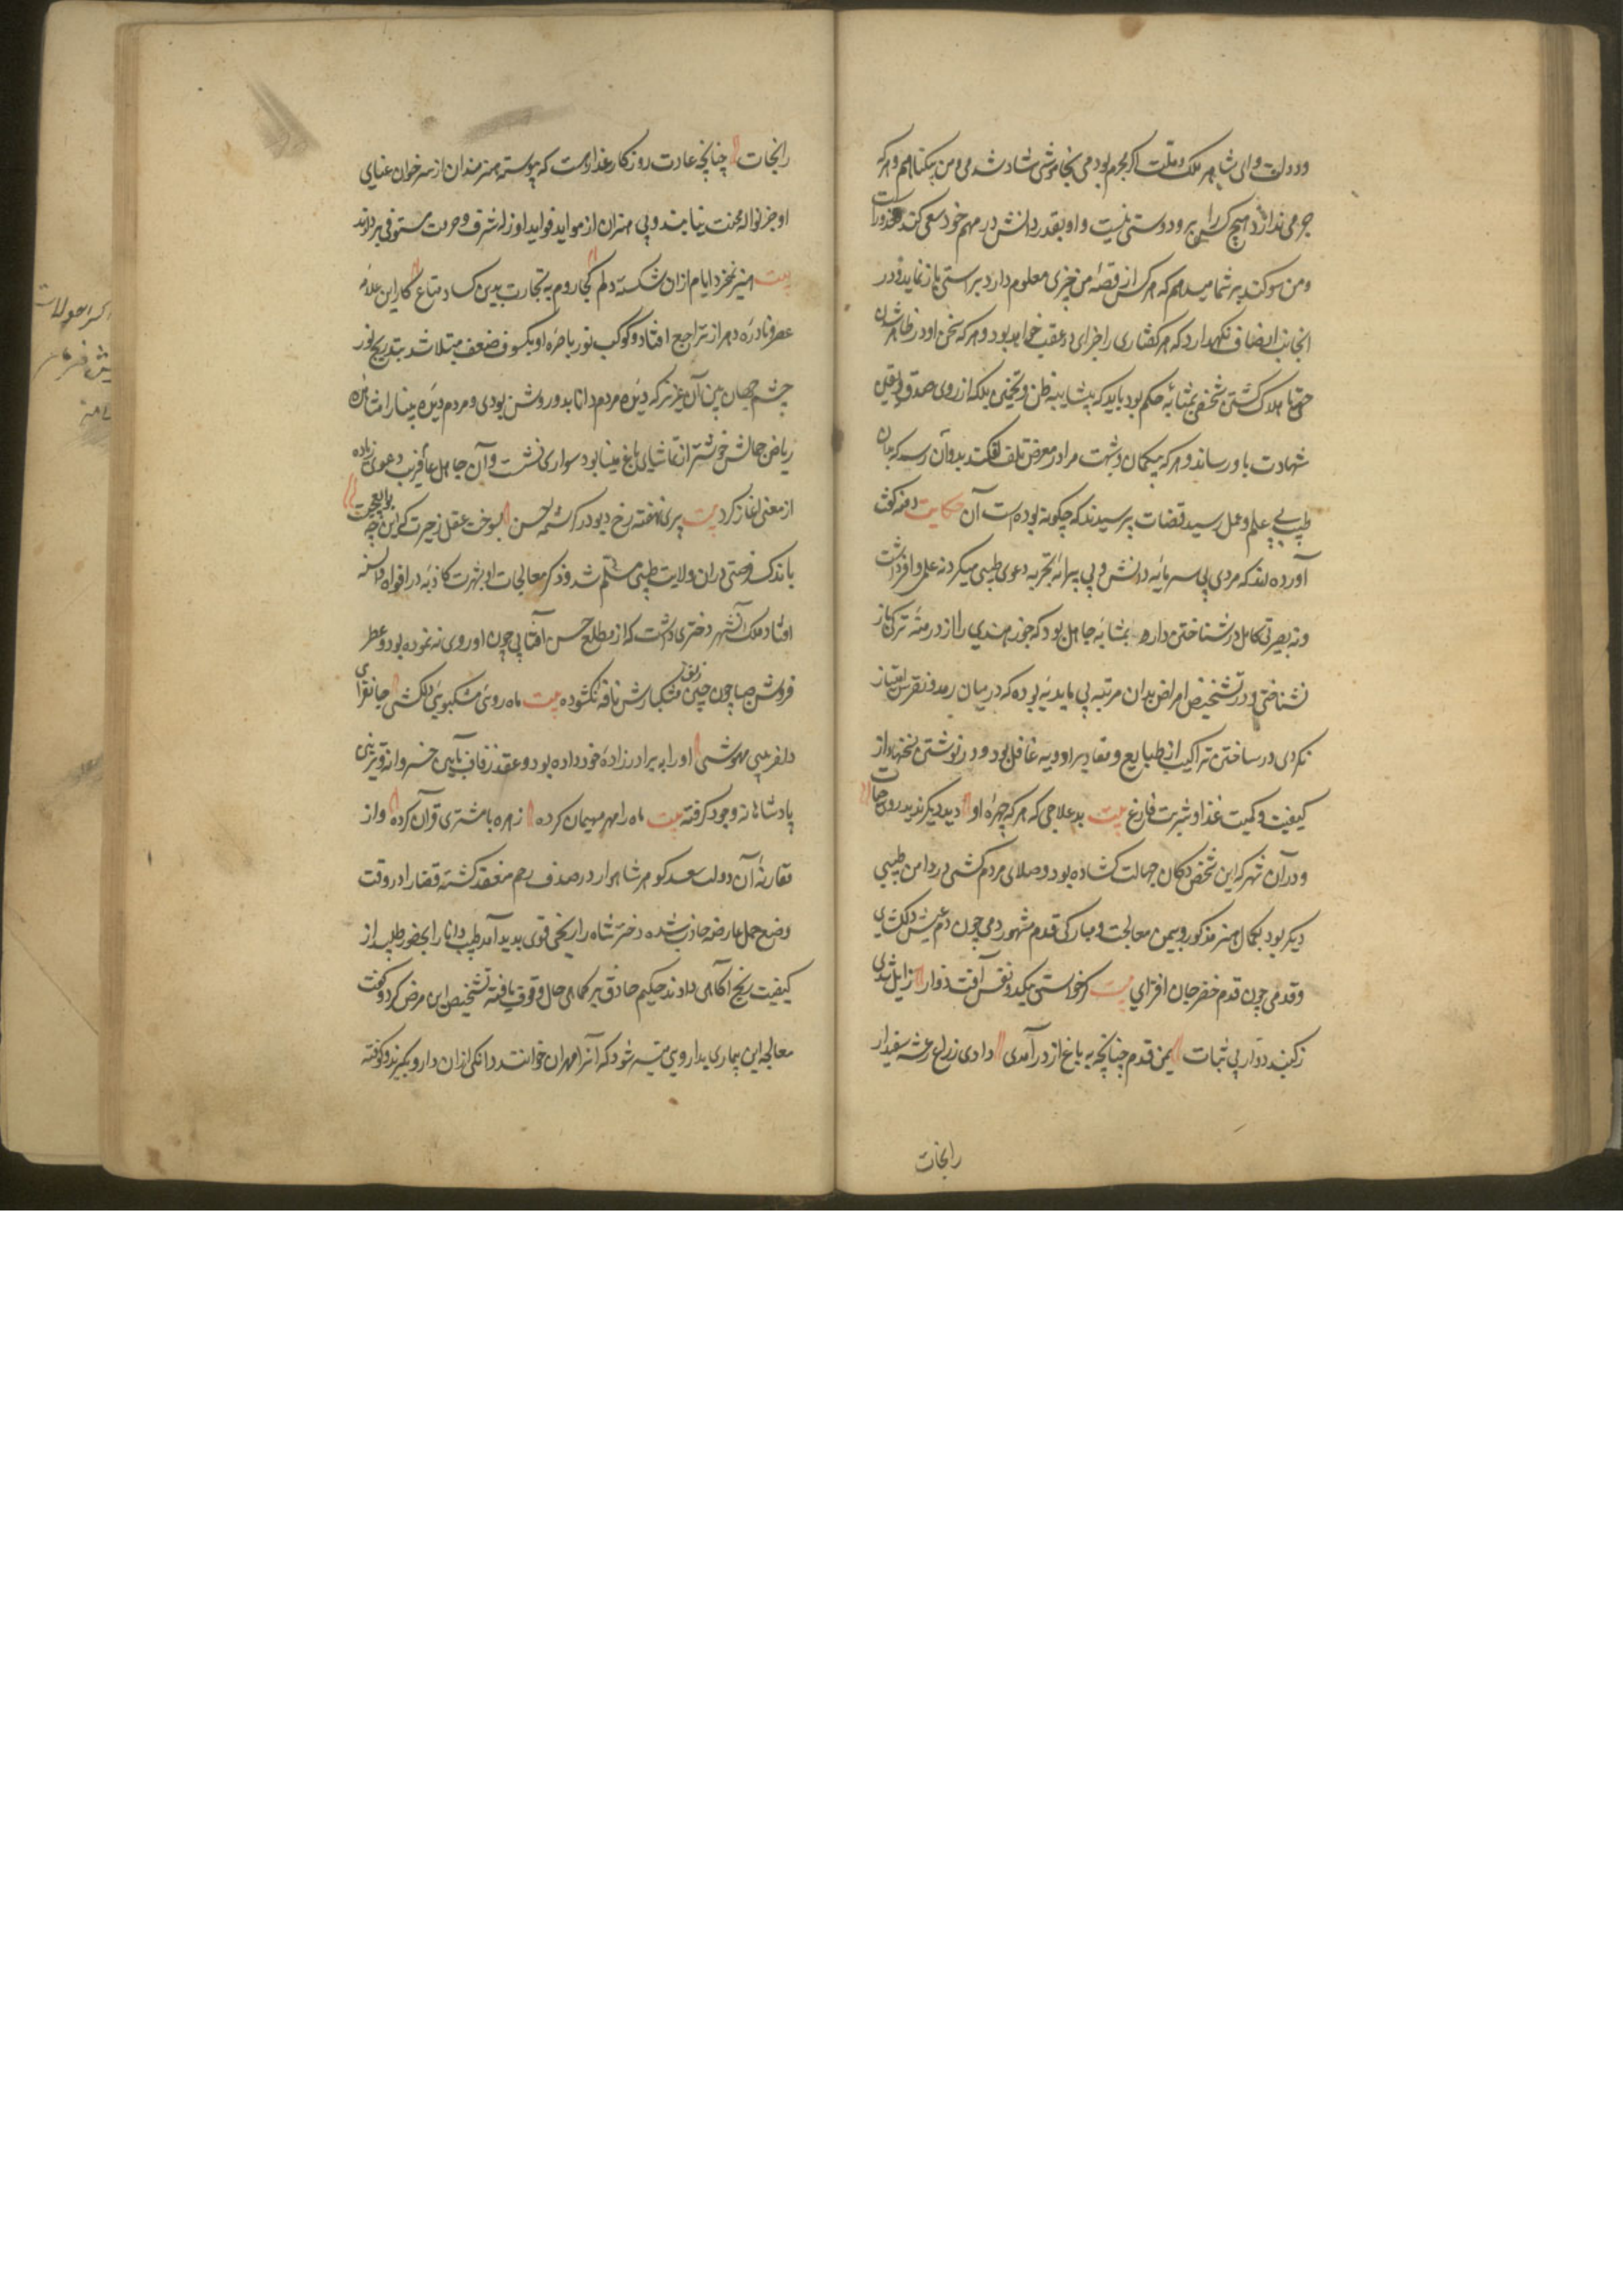 ودولت وای شاهر ملک وملت اکر مجرم بودمی بخاموشی شاد شدمی ومن بیکناهم وهرکه
جرمی ندارد هیچ کس را برو دوستی نیست واو بقدر دانش در مهم خود سعی کند معذورست
ومن سوکند بر شما میدهم که هرکس از قصه من خبری معلوم دارد براستی باز نماید ودر
انجانب انصاف نکهدارد که هر کفتاری را جزای در عقب خواهد بود وهرکه سخن او در ظاهر شدن
حق یا هلاک کشتن شخصی بمثابه حکم بود باید که بشایبه ظن وتخمین بلکه از روی صدق ویقین
شهادت باور رساند وهرکه بکمان وشبهت مرا در معرض تلف افکند بدو آن رسد که بدان
طبیب بی علم وعمل رسید قضات پرسیدند که چکونه بوده است آن حکایت دمنه کفت
آورده اند که مردی بی سرمایه دانش وبی پیرایه تجربه دعوی طبیبی میکرد نه علم وافر داشت
ونه بصیرتی کامل در شناختن دارو بمثابه جاهل بود که جوز هندی را از درمنه ترکی باز
نشناختی ودر تشخیص امراض بدان مرتبه بی مایدیه بوده که در میان رمد ونقرس امتیاز
نکردی در ساختن تراکیب از طبایع ومقادیر ادویه غافل بود ودر نوشتن نسخها از
کیفیت وکمیت غذا وشربت فارغ بیت بد علاجی که هرکه چهره او دید دیکر ندید روی حیات
ودر آن شهر که این شخص دکان جهالت کشاده بود وصلای مردم کشی در داده من طبیبی
دیکر بود بکمال هنر مذکور وبیمن معالجت ومبارکی قدم مشهور دمی چون دم عیش دلکشای
وقدمی چون قدم خضر جان افزای بیت کر خواستی بیکدو نفس آفت دوار زایل شدی
ز کنبد دوار بی ثبات یمن قدم چنانچه به باغ از در آمدی دادی ز رنج رعشه سفیدار
رانجات
رانجات چنانچه عادت روزکار غدارست که پیوسته هنرمندان از سر خوان عنای
او جز نواله محنت نیابند وبی هنران از مواید فواید او زله شرف وحرمت مستوفی بردارند
بیت هنر نمیخرد ایام ازان شکسته دلم کجا روم به تجارت بدین کساد متاع کار این علامه
عصر ونادره دهر از تراجع افتاد وکوکب نور باصره او بکسوف ضعف مبتلا شد بتدریج نور
چشم جهان بین آن عزیز که دیده مردم دانا بدو روشن بودی ومردم دیده بینا را مشاهده
ریاض جمالش خوشتر از تماشای باغ مینا بود سواری نشست وآن جاهل عامه فریب دعوی زیاده
از معنی آغاز کرد بیت پری نهفته رخ ودیو در کرشمه حسن بسوخت عقل ز حیرت که این چه بوالعجبیست
باندک فرصتی دران ولایت بطبیبی مسلم شد وذکر معالجات او بشهرت کاذبه در افواه والسنه
افتاد ملک آن شهر دختری داشت که از مطلع حسن آفتابی چون او روی ننموده بود وعطر
فروش صبا چون چین زلف مشکبارش نافه نکشوده بیت ماه روئی مشکبوئی دلکشی جانفزای
دلفریبی مهوشی اورا به برادرزاده خود داده بود وعقد زفاف بآیین خسروانه وتزئینی
پادشاهانه وجود کرفته بیت ماه را مهر میهمان کرده زهره با مشتری قران کرده واز
مقارنه آن دولت سعد کوهر شاهوار در صدف رحم منعقد کشته قضا را در وقت
وضع حمل عارضه حادث شده دختر شاه را رنجی قوی پدید آمد طبیب دانا را بحضور طلبیده از
کیفیت رنج آکاهی دادند حکیم حاذق بر کماهی حال وقوف یافته تشخیص این مرض کرد وکفت
معالجه این بیماری بداروی میسر شود که آنرا مهران خوانند دانکی ازان دارو بکیرند وکوفته